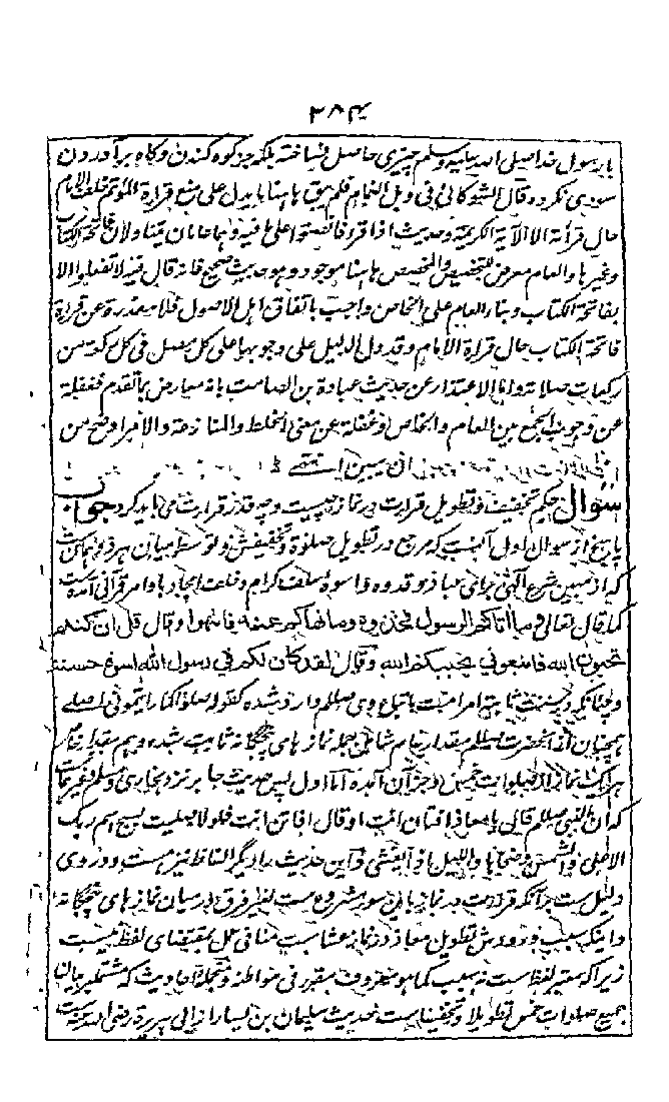 ۲۸۴
با رسول خدا صلی الله علیه وسلم چیزی حاصل نساخته بلکه جز کوه کندن و کاه برآوردن
سودی نکرده وقال الشوکانی فی وبل الغمام فلم یبق ههنا ما یدل علی منع قراءة المؤتم خلف الامام
حال قراءته الا الآیة الکریمة وحدیث اذا قرأ فانصتوا علی ما فیه وهما عامان یتناولان فاتحة الکتاب
وغیرها والعام معرض للتخصیص والمخصص ههنا موجود وهو حدیث صحیح فانه قال فیه لا تفعلوا الا
بفاتحة الکتاب وبناء العام علی الخاص واجب باتفاق اهل الاصول فلا معذرة عن قراءة
فاتحة الکتاب حال قراءة الامام وقد دل الدلیل علی وجوبها علی کل مصل فی کل رکعة من
رکعات صلاته واما الاعتذار عن حدیث عبادة بن الصامت بانه معارض بما تقدم فغفلة
عن وجوب الجمع بین العام والخاص او غفلة عن معنی الخلط والمنازعة والامر اوضح من
ان یبین انتهی
سوال حکم تخفیف وتطویل قراءت در نماز چیست وچه قدر قراءت می باید کرد جواب
پاسخ از سوال اول آنست که مرجع در تطویل صلوة وتخفیفش وتوسط میان هر دو همان ست
که از مبین شرع الٰهی برای عباد وقدوه واسوهٔ سلف کرام وخلف امجاد با وامر قرآنی آمده ست
کما قال تعالی وما اتاکم الرسول فخذوه وما نهاکم عنه فانتهوا وقال قل ان کنتم
تحبون الله فاتبعونی یحببکم الله وقال لقد کان لکم فی رسول الله اسوة حسنة
وچنانکه در سنت ثابته امر امت باتباع وی صلعم وارد شده کقوله صلوا کما رأیتمونی اصلی
همچنان از آنحضرت صلعم مقدار عام شامل جمله نمازهای پنجگانه ثابت شده وهم مقدار خاص
هر یک نماز از صلوات خمس در خبر آن آمده اما اول پس حدیث جابر نزد بخاری ومسلم وغیرهماست
که ان النبی صلعم قال یا معاذ افتان انت او قال افاتن انت فلولا صلیت بسبح اسم ربک
الاعلی والشمس وضحاها واللیل اذا یغشی واین حدیث را دیگر الفاظ نیز هست ودر وی
دلیل ست بر آنکه قراءت در نماز باین سور مشروع ست بغیر فرق در میان نمازهای پنجگانه
واینکه سبب ورودش تطویل معاذ در نماز عشاست منافی عمل بمقتضای لفظ نیست
زیرا که معتبر لفظ ست نه سبب کما هو معروف مقرر فی مواطنه وجمله احادیث که مشتمل بر بیان
جمیع صلوات خمس تطویلا وتخفیفا ست حدیث سلیمان بن یسار از ابی هریرة رضی الله عنه ست